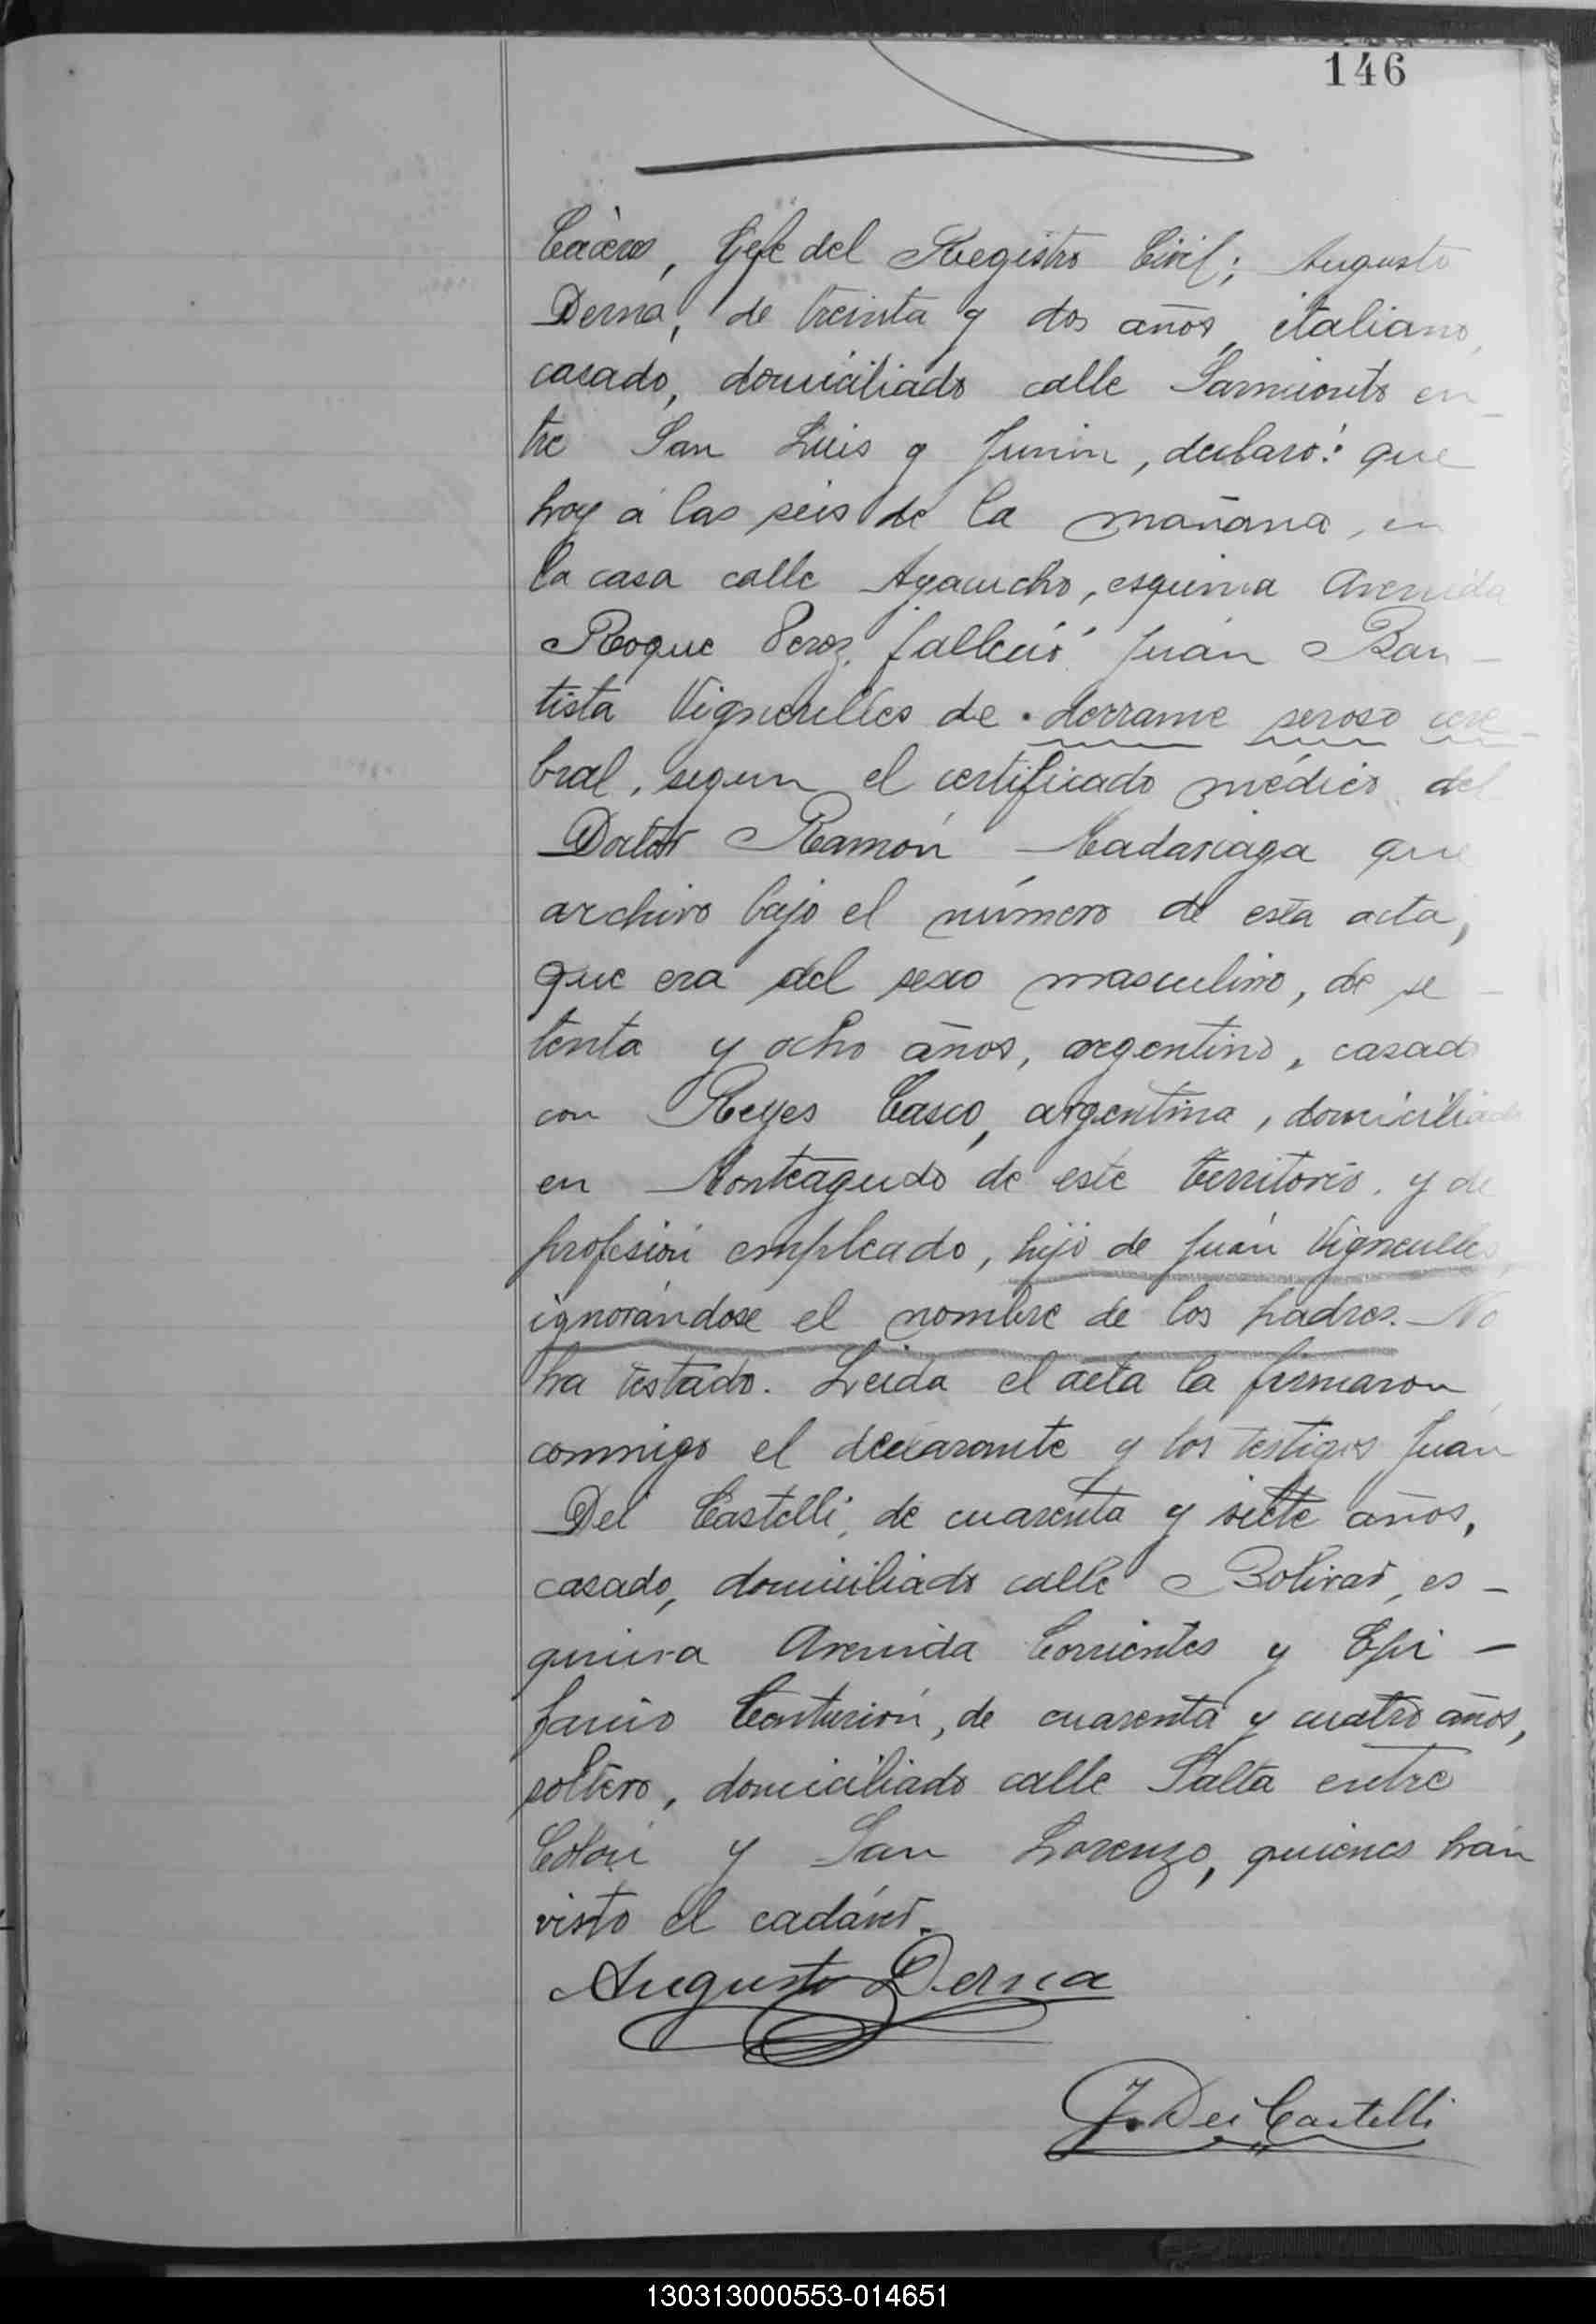 146
Cáceres, Gefe del Registro Civil; Augusto
Derna, de treinta y dos años, italiano,
casado, domiciliado calle Sarmiento en-
tre San Luis y Junin, declaró: que
hoy á las seis de la mañana, en
la casa calle Ayacucho, esquina Avenida
Roque Perez, falleció Juan Bau-
tista Vigneulles de derrame seroso cere-
bral, segun el certificado médico del
Doctor Ramón Madariaga que
archivo bajo el número de esta acta,
que era del sexo masculino, de se-
tenta y ocho años, argentino, casado
con Reyes Casco, argentina, domiciliado
en Monteagudo de este territorio, y de
profesión empleado, hijo de Juan Vigneulles,
ignorándose el nombre de los padres. No
ha testado. Leida el acta la firmaron
conmigo el declarante y los testigos Juan
Dei Castelli, de cuarenta y siete años,
casado, domiciliado calle Bolivar, es-
quina Avenida Corrientes y Epi-
fanio Centurión, de cuarenta y cuatro años,
soltero, domiciliado calle Salta entre
Colón y San Lorenzo, quienes han
visto el cadáver.
Augusto Derna
J. Dei Castelli
130313000553-014651